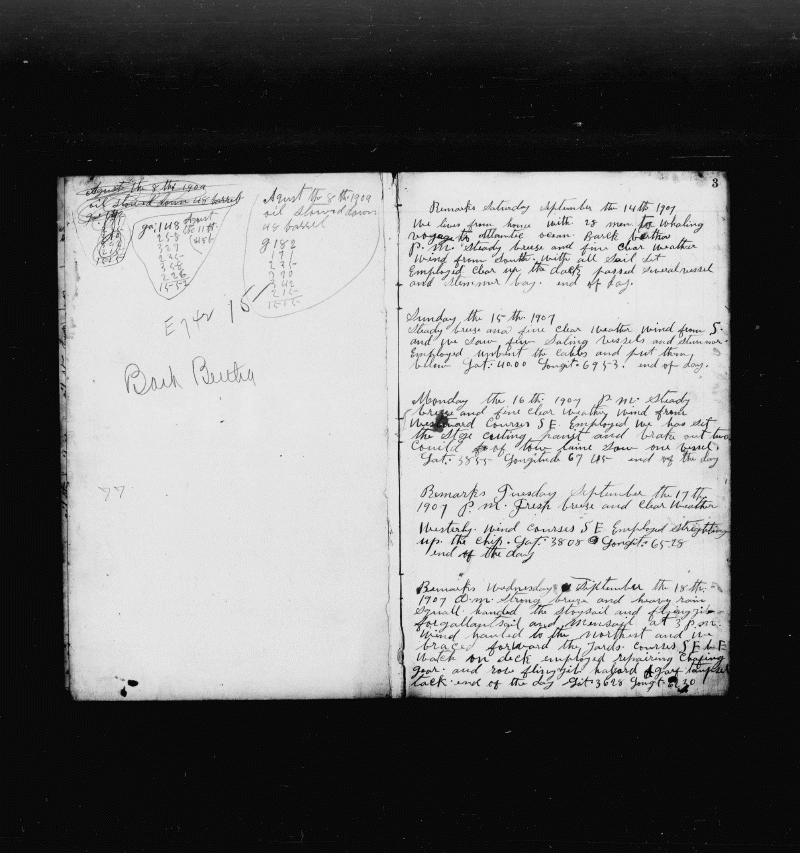 Agust the 8 th 1909
oil stowed down 48 barrels
Agust the 8 th 1909
oil stowed down
48 barrel
g 182
171
235
290
342
215
ga. 148
258
Agust
the 11th
Ezar 15
Bark Bertha
77
3
Remarks Saturday September the 14th 1907
We lives from home with 28 men for Whaling
voyage to Atlantic ocean Barck bertha
P. M. Steady breese and fine clar Weather
Wind from South. with all Sail Set
Employed Clar up the deck passed several vessel
and Stemmer bay. end of day.
Sunday the 15 th. 1907
Steady breese and fine clear Weather Wind from S.
and We Saw few Saling Vessels and Stemmer.
Employed unbent the cables and put them
below Lat. 40.00 Longit. 69 53. end of day.
Monday the 16 th. 1907 P. M. Steady
breese and fine clar Weather Wind from
Westward Courses S E. Employed We has Set
the Stage cuting, paint and brake out two
Could of tow laine Saw one Vessel.
Lat. 38 55 Longitude 67 45 end of the day
Remarks Tuesday September the 17 th
1907 P. M. Fresh breese and clar Weather
Westerly Wind Courses S E Employed Strighting
up the Chip. Lat. 38 08 Longit. 65-28
end of the day
Remarks Wednesday September the 18 th.
1907 a.m. Strong breese and heavy rain
Squall handed the Staysail and flying jib
forgallan sail and Mensail at 3 p.m.
Wind hauled to the Northest and We
braced forward the Yards. Courses S E b E
Watch on deck employed repairing Chafing
gear and rove fling jib halard &
tack. end of the day Lat. 36 28 Longt.